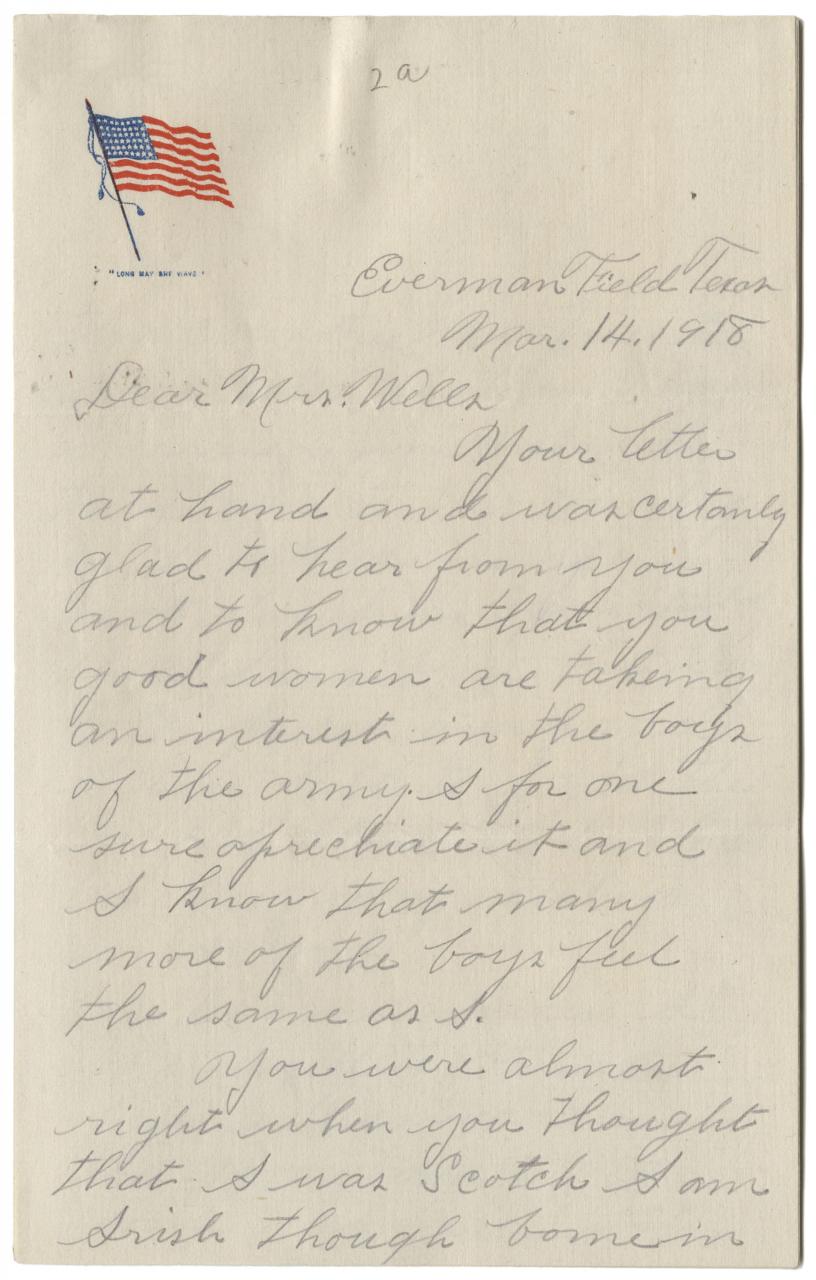 2a
"LONG MAY SHE WAVE"
Everman Field Texas
Mar. 14. 1918
Dear Mrs. Wells
Your letter
at hand and was certanly
glad to hear from you
and to know that you
good women are takeing
an interest in the boys
of the army. I for one
sure aprechiate it and
I know that many
more of the boys feel
the same as I.
You were almost
right when you thought
that I was Scotch I am
Irish though borne in